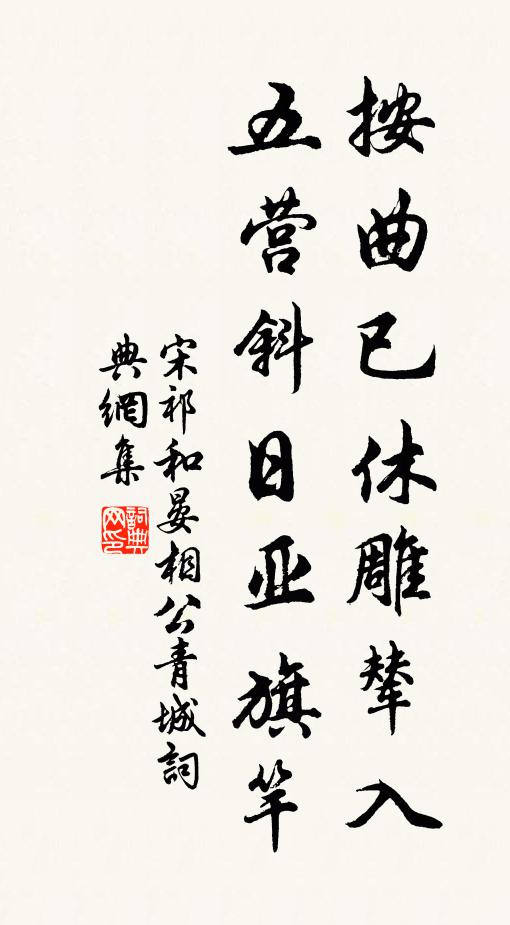 按曲已休雕辇入
五营斜日亚旗竿
宋祁和晏相公青城詞
典網集
詞典
网印